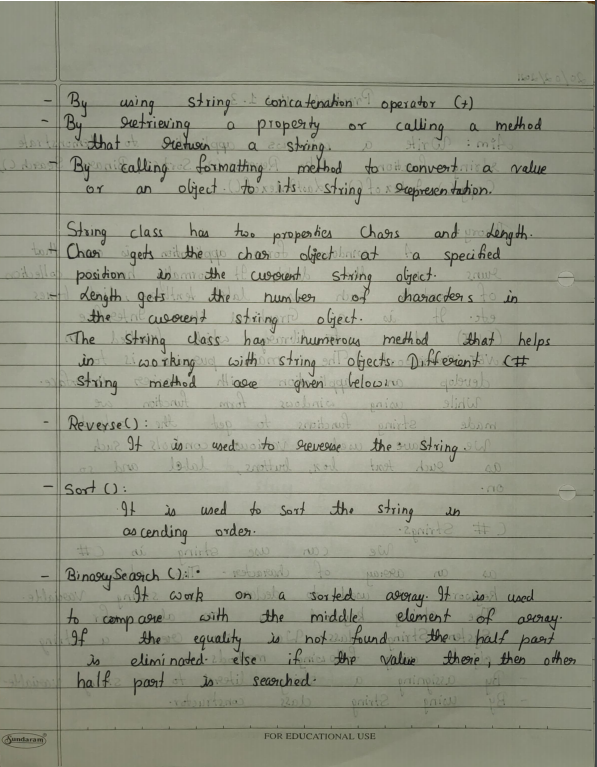 - By using string concatenation operator (+)
- By retrieving a property or calling a method
that return a string.
- By calling formatting method to convert a value
or an object to its string representation.
String class has two properties Chars and Length.
- Char gets the char object at a specified
position in the current string object.
- Length gets the number of characters in
the current string object.
The string class has numerous method that helps
in working with string objects. Different C#
string method are given below.
- Reverse():
It is used to reverse the string.
- Sort ():
It is used to sort the string in
ascending order.
- BinarySearch ():
It work on a sorted array. It is used
to compare with the middle element of array.
If the equality is not found the half part
is eliminated. else if the value there, then other
half part is searched.
Sundaram
FOR EDUCATIONAL USE